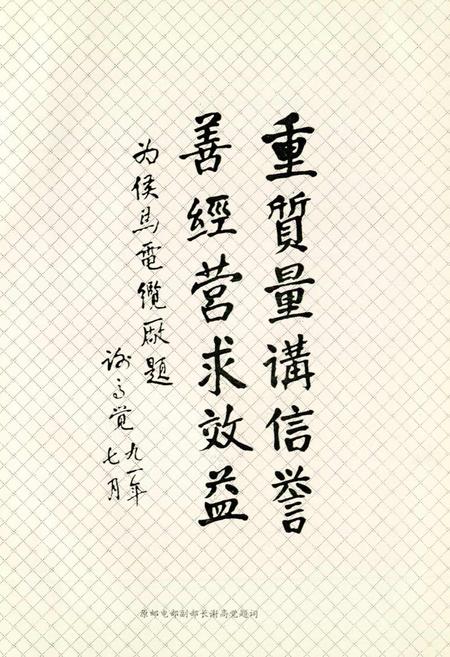 重質量講信誉
善經营求效益
为侯馬電纜厰題
谢高觉
九一年
七月
原邮电部副部长谢高觉题词